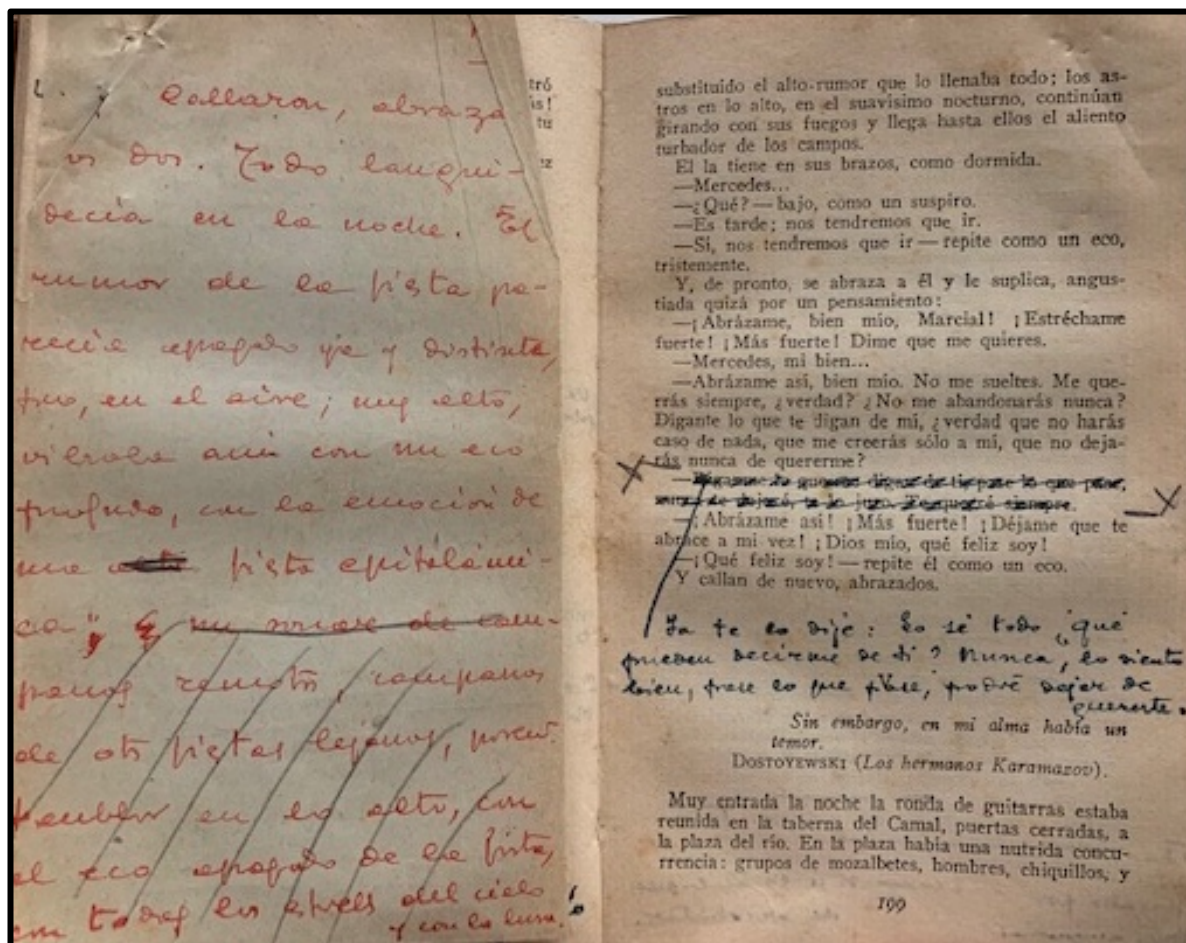 Callaron, abraza
os dos. Todo langui-
decía en la noche. El
rumor de la fiesta pa-
recía apagado ya y distinto,
pero, en el aire; muy alto,
vibraba aún con un eco
profundo, con la emoción de
una fiesta epitalámi-
ca
un sonar de cam-
panas remotas, campanas
de ots fiestas lejanas,
temblor en lo alto, con
el eco apagado de la fiesta,
con todas las del cielo
y con la luna.
tró
as!
tu
ez
substituído el alto rumor que lo llenaba todo; los as-
tros en lo alto, en el suavísimo nocturno, continúan
girando con sus fuegos y llega hasta ellos el aliento
turbador de los campos.
El la tiene en sus brazos, como dormida.
—Mercedes...
—¿Qué? — bajo, como un suspiro.
—Es tarde; nos tendremos que ir.
—Sí, nos tendremos que ir — repite como un eco,
tristemente.
Y, de pronto, se abraza a él y le suplica, angus-
tiada quizá por un pensamiento:
—¡Abrázame, bien mío, Marcial! ¡Estréchame
fuerte! ¡Más fuerte! Dime que me quieres.
—Mercedes, mi bien...
—Abrázame así, bien mío. No me sueltes. Me que-
rrás siempre, ¿verdad? ¿No me abandonarás nunca?
Digante lo que te digan de mí, ¿verdad que no harás
caso de nada, que me creerás sólo a mí, que no deja-
rás nunca de quererme?
—Díganme lo que me digan de ti pase lo que pase,
nunca te dejaré, te lo juro. Te querré siempre.
—¡Abrázame así! ¡Más fuerte! ¡Déjame que te
abrace a mi vez! ¡Dios mío, qué feliz soy!
—¡Qué feliz soy! — repite él como un eco.
Y callan de nuevo, abrazados.
Ya te lo dije: Lo sé todo ¿qué
pueden decirme de ti? Nunca, lo siento
bien, pase lo que pase, podré dejar de
quererte.
Sin embargo, en mi alma había un
temor.
DOSTOYEWSKI (Los hermanos Karamazov).
Muy entrada la noche la ronda de guitarras estaba
reunida en la taberna del Camal, puertas cerradas, a
la plaza del río. En la plaza había una nutrida concu-
rrencia: grupos de mozalbetes, hombres, chiquillos, y
199